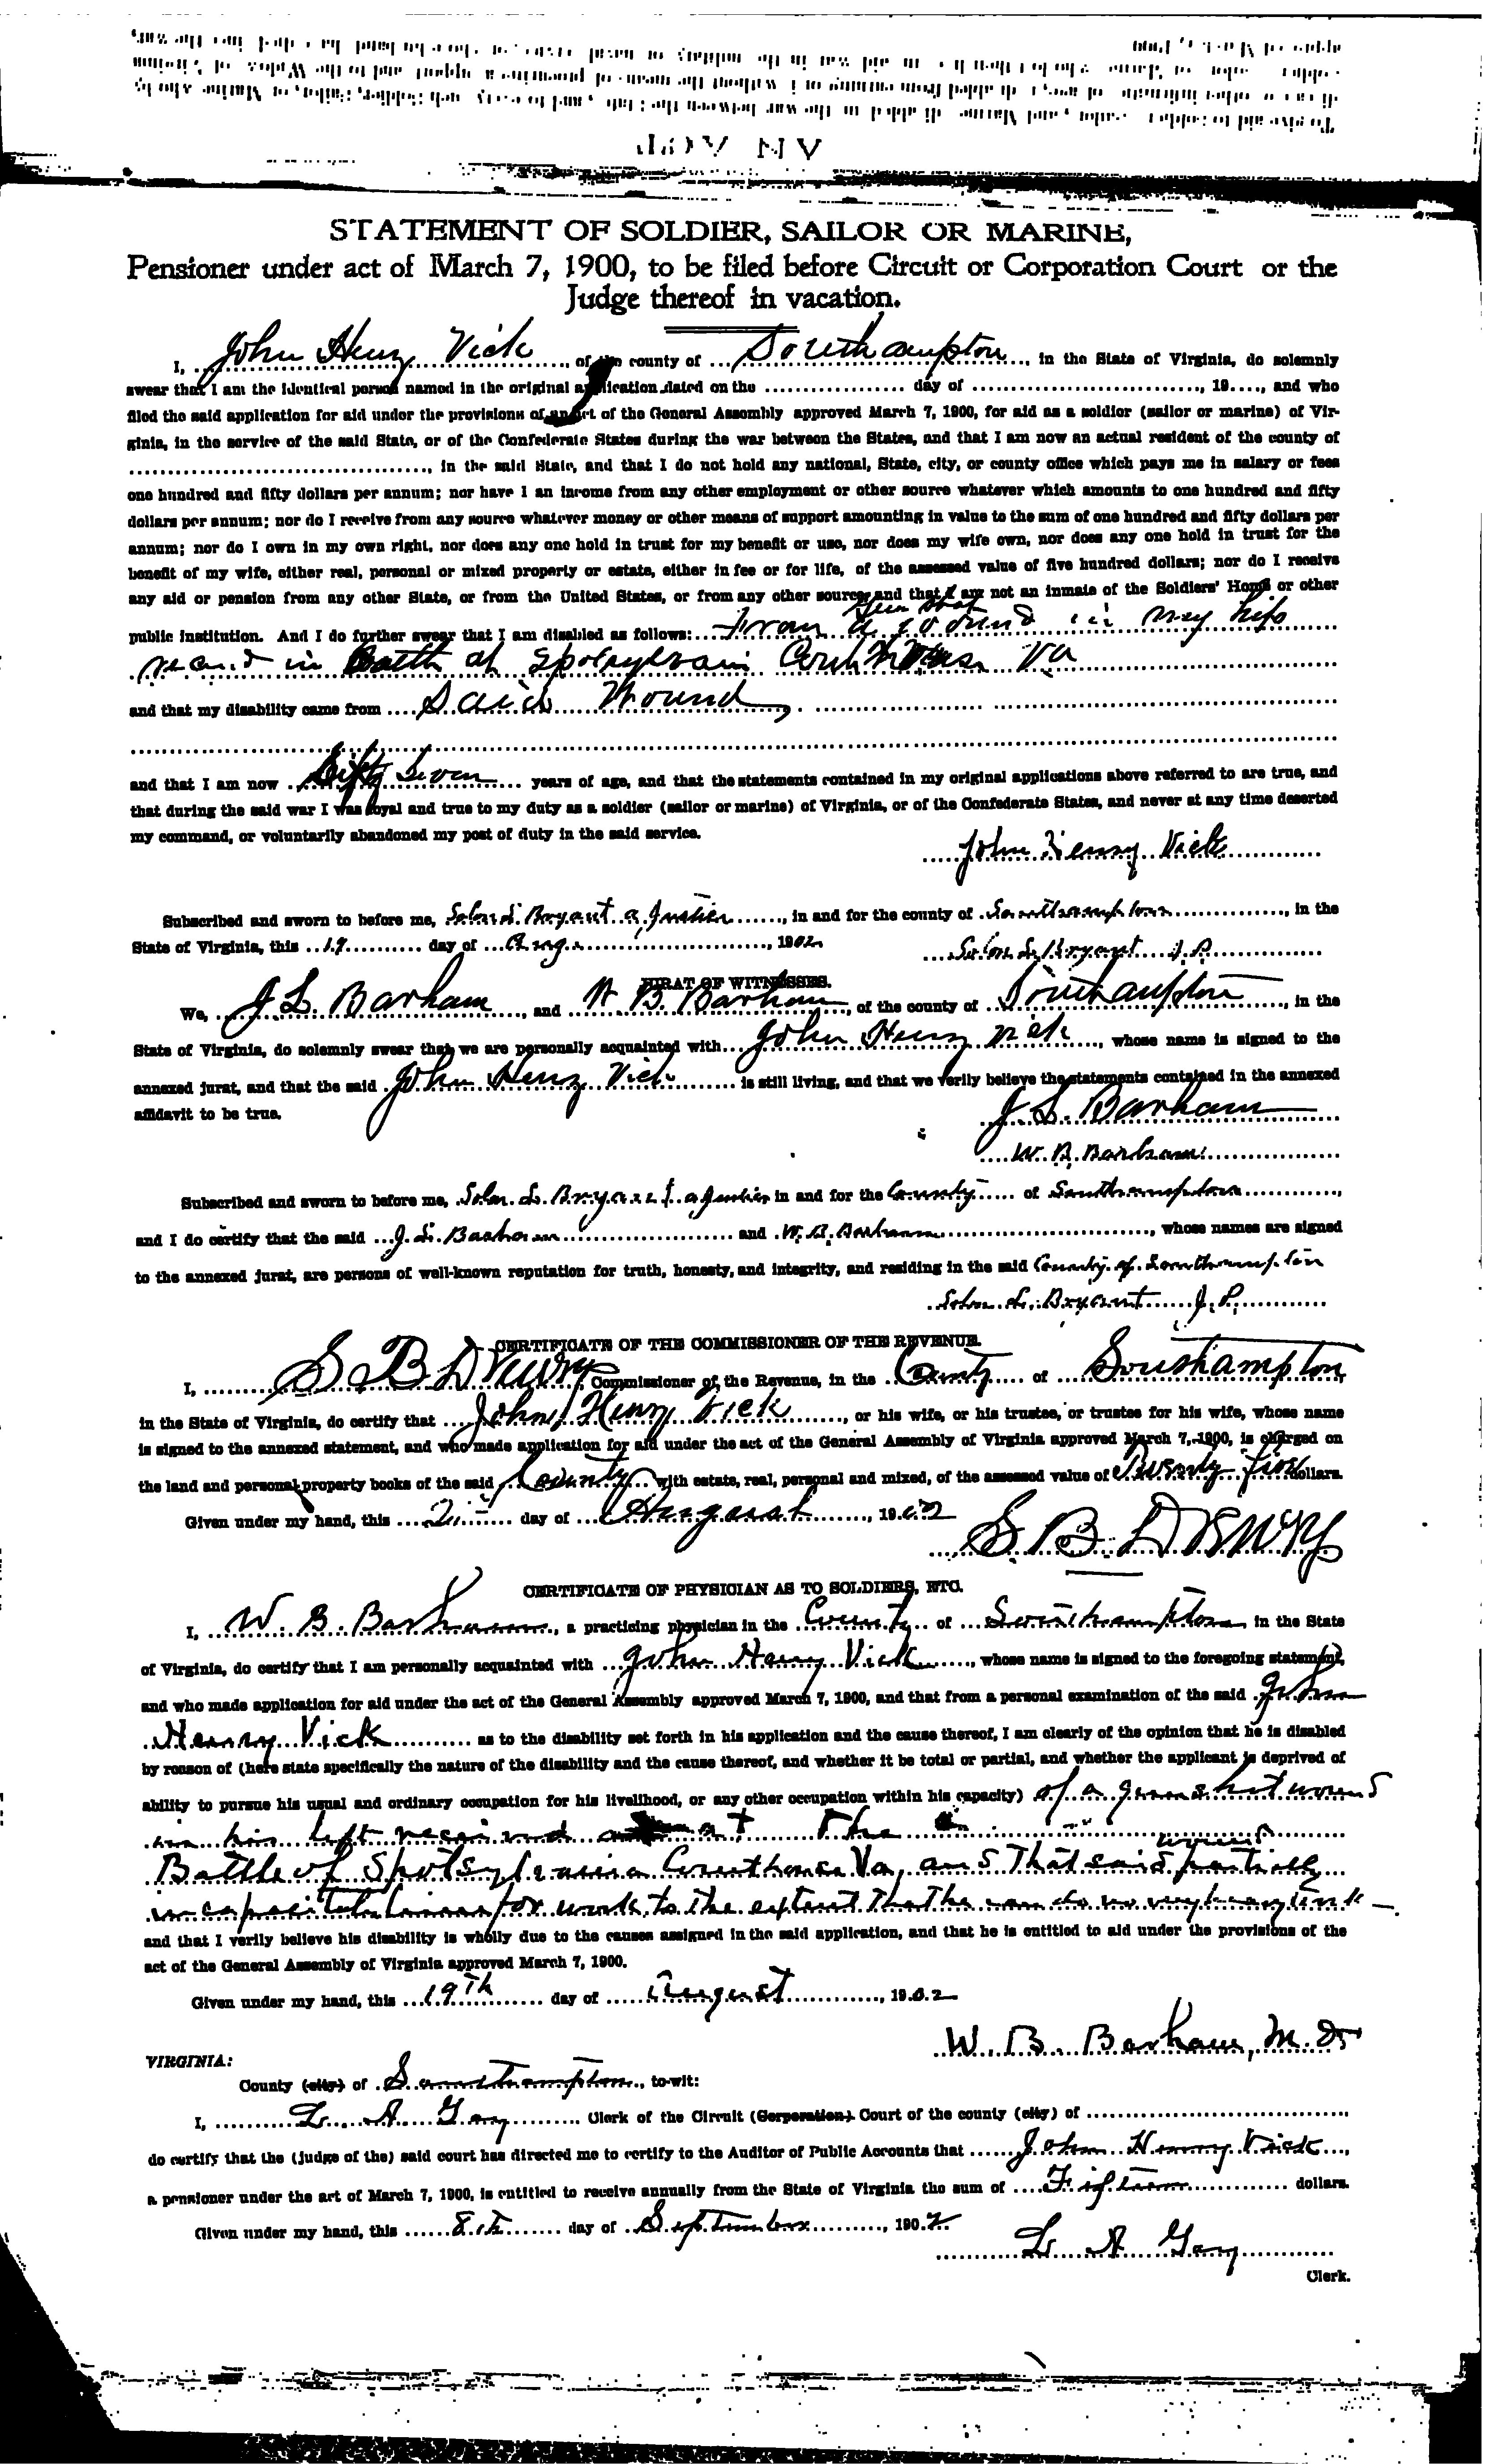 STATEMENT OF SOLDIER, SAILOR OR MARINE,
Pensioner under act of March 7, 1900, to be filed before Circuit or Corporation Court or the
Judge thereof in vacation.
I, John Henry Vick, of the county of Southampton, in the State of Virginia, do solemnly
swear that I am the identical person named in the original application dated on the ................ day of ................, 19...., and who
filed the said application for aid under the provisions of an act of the General Assembly approved March 7, 1900, for aid as a soldior (sailor or marine) of Vir-
ginia, in the service of the said State, or of the Confederate States during the war between the States, and that I am now an actual resident of the county of
................, in the said State, and that I do not hold any national, State, city, or county office which pays me in salary or fees
one hundred and fifty dollars per annum; nor have I an income from any other employment or other source whatever which amounts to one hundred and fifty
dollars per annum; nor do I receive from any source whatever money or other means of support amounting in value to the sum of one hundred and fifty dollars per
annum; nor do I own in my own right, nor does any one hold in trust for my benefit or use, nor does my wife own, nor does any one hold in trust for the
benefit of my wife, either real, personal or mixed property or estate, either in fee or for life, of the assessed value of five hundred dollars; nor do I receive
any aid or pension from any other State, or from the United States, or from any other source; and that I am not an inmate of the Soldiers' Home or other
public institution. And I do further swear that I am disabled as follows: From a Gun shot wound in my hip
in Battle at Spotsylvania Court House Va
and that my disability came from Said Wound,
and that I am now Fifty Seven years of age, and that the statements contained in my original applications above referred to are true, and
that during the said war I was loyal and true to my duty as a soldier (sailor or marine) of Virginia, or of the Confederate States, and never at any time deserted
my command, or voluntarily abandoned my post of duty in the said service.
John Henry Vick
Subscribed and sworn to before me, Solon L. Bryant a Justice, in and for the county of Southampton, in the
State of Virginia, this 19 day of Aug., 1902
Solon L. Bryant J.P.
JURAT OF WITNESSES.
We, J L. Barham, and W B. Barham, of the county of Southampton, in the
State of Virginia, do solemnly swear that we are personally acquainted with John Henry Vick, whose name is signed to the
annexed jurat, and that the said John Henry Vick is still living, and that we verily believe the statements contained in the annexed
affidavit to be true.
J L. Barham
W. B. Barham
Subscribed and sworn to before me, Solon L. Bryant a Justice in and for the County of Southampton,
and I do certify that the said J. L. Barham and W. B. Barham, whose names are signed
to the annexed jurat, are persons of well-known reputation for truth, honesty, and integrity, and residing in the said County of Southampton
Solon L. Bryant J. P.
CERTIFICATE OF THE COMMISSIONER OF THE REVENUE.
I, S B Drewry, Commissioner of the Revenue, in the County of Southampton,
in the State of Virginia, do certify that John Henry Vick, or his wife, or his trustee, or trustee for his wife, whose name
is signed to the annexed statement, and who made application for aid under the act of the General Assembly of Virginia approved March 7, 1900, is charged on
the land and personal property books of the said County with estate, real, personal and mixed, of the assessed value of Twenty five dollars.
Given under my hand, this day of August, 1902
S. B. Drewry
CERTIFICATE OF PHYSICIAN AS TO SOLDIERS, ETC.
I, W. B. Barham, a practicing physician in the County of Southampton in the State
of Virginia, do certify that I am personally acquainted with John Henry Vick, whose name is signed to the foregoing statement,
and who made application for aid under the act of the General Assembly approved March 7, 1900, and that from a personal examination of the said John
Henry Vick as to the disability set forth in his application and the cause thereof, I am clearly of the opinion that he is disabled
by reason of (here state specifically the nature of the disability and the cause thereof, and whether it be total or partial, and whether the applicant is deprived of
ability to pursue his usual and ordinary occupation for his livelihood, or any other occupation within his capacity) of a gunshot wound
in his left received at the
Battle of Spotsylvania Courthouse Va, and that said wound partially
incapacitates him for work to the extent that he can do no very heavy work
and that I verily believe his disability is wholly due to the causes assigned in the said application, and that he is entitled to aid under the provisions of the
act of the General Assembly of Virginia approved March 7, 1900.
Given under my hand, this 19th day of August, 1902
W. B. Barham, M. D.
VIRGINIA:
County (city) of Southampton, to-wit:
I, L. A Gay Clerk of the Circuit (Corporation) Court of the county (city) of ................
do certify that the (judge of the) said court has directed me to certify to the Auditor of Public Accounts that John Henry Vick,
a pensioner under the act of March 7, 1900, is entitled to receive annually from the State of Virginia the sum of Fifteen dollars.
Given under my hand, this 8th day of September, 1902
L A Gay
Clerk.